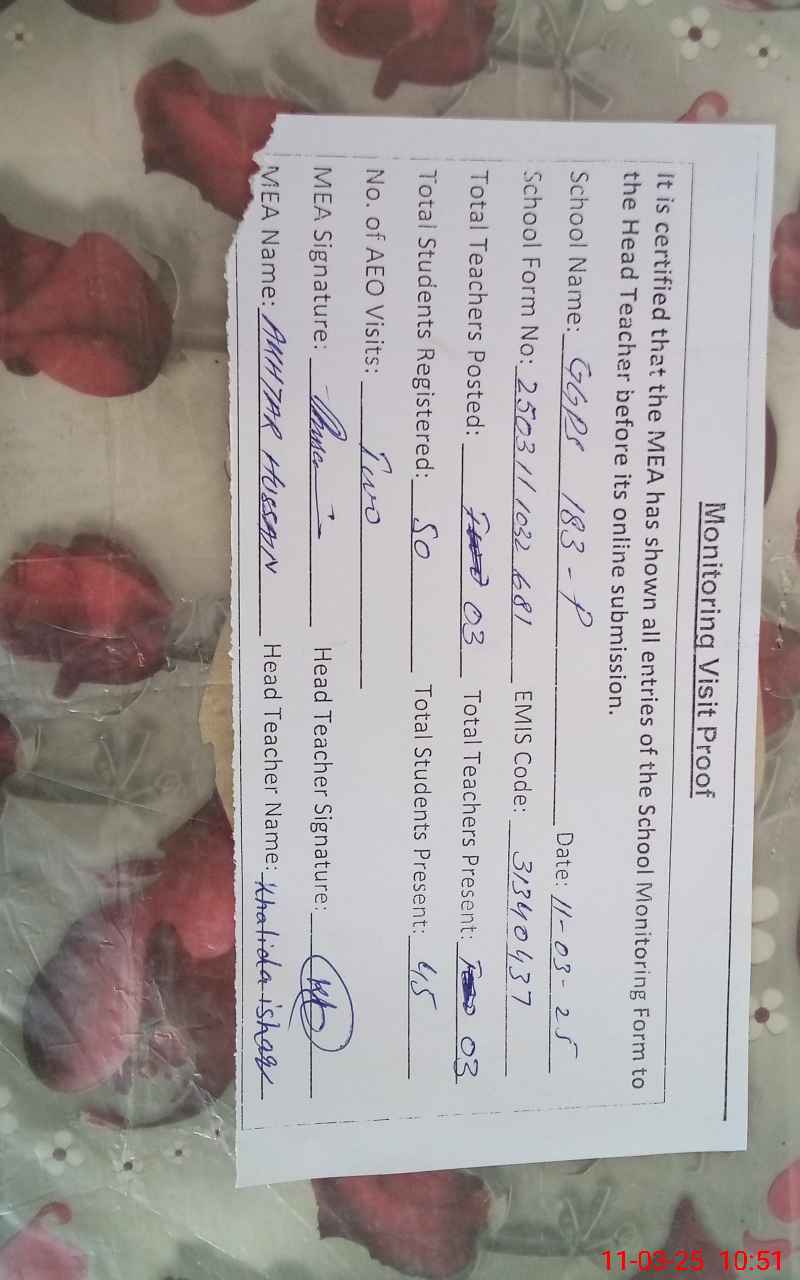 Monitoring Visit Proof
It is certified that the MEA has shown all entries of the School Monitoring Form to
the Head Teacher before its online submission.
School Name: GGPS 183-P Date: 11-03-25
School Form No: 250311 1032 681 EMIS Code: 31340437
Total Teachers Posted: 03 Total Teachers Present: 03
Total Students Registered: 50 Total Students Present: 45
No. of AEO Visits: Two
MEA Signature: Head Teacher Signature:
MEA Name: AKHTAR HUSSAIN Head Teacher Name: Khalida ishaq
11-03-25 10:51